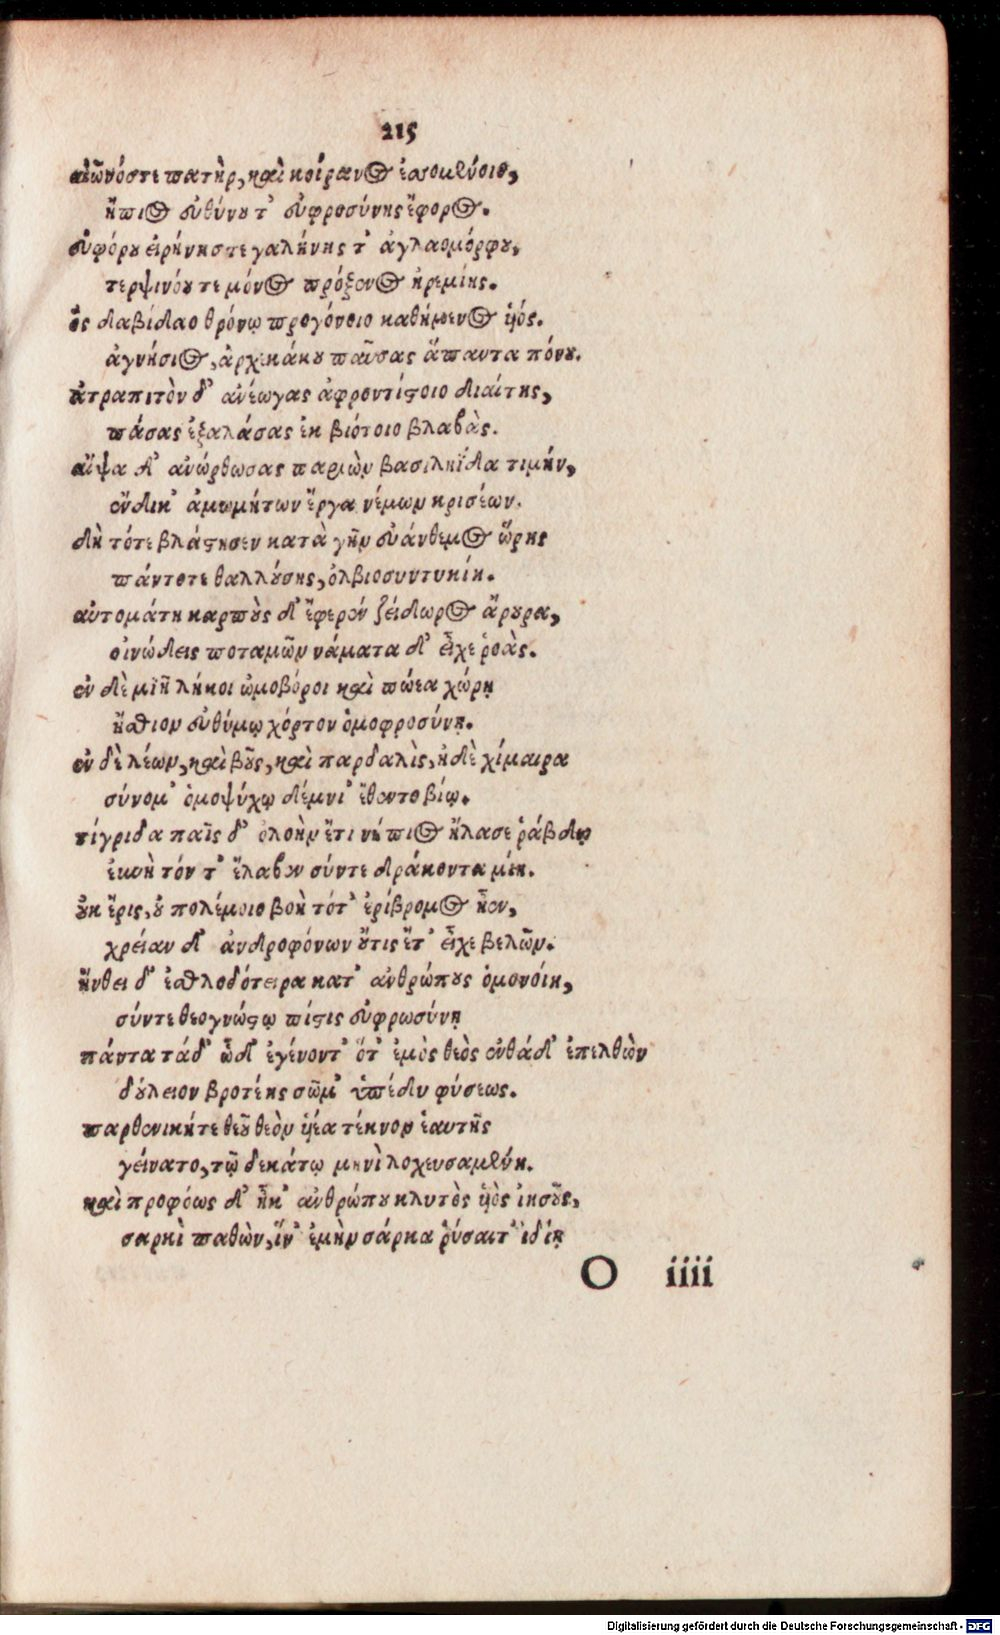 215
αἰῶνόστε πατὴρ, καὶ κοίρανος ἐσσομένοιο,
ἤπιος εὐθύνου τ' εὐφροσύνης ἔφορος.
εὐφόρου εἰρήνης τε γαλήνης τ' ἀγλαομόρφου,
τερψινόου τε μόνος πρόξενος ἠρεμίης.
ὃς δαβίδαο θρόνῳ προγόνοιο καθήμενος ὑός.
ἁγνήσιος, ἀρχεκάκου παῦσας ἅπαντα πόνου.
ἀτραπιτὸν δ' ἀνέωγας ἀφροντίστοιο διαίτης,
πάσας ἐξαλάσας ἐκ βιότοιο βλαβὰς.
αἶψα δ' ἀνώρθωσας παριὼν βασιληΐδα τιμήν,
ἔνδικ' ἀμωμήτων ἔργα νέμων κρισέων.
δὴ τότε βλάστησεν κατὰ γῆν εὐάνθεμος ὥρης
πάντοτε θαλλούσης, ὀλβιοσυντυχίη.
αὐτομάτη καρποὺς δ' ἔφερεν ζείδωρος ἄρουρα,
οἰνώδεις ποταμῶν νάματα δ' εἶχε ῥοὰς.
ἐν δὲ μιῇ λύκοι ὠμοβόροι καὶ πώεα χώρῃ
ἤσθιον εὐθύμῳ χόρτον ὁμοφροσύνῃ.
ἐν δὲ λέων, καὶ βοῦς, καὶ παρδαλὶς, ἠδὲ χίμαιρα
σύνομ' ὁμοψύχῳ δέμνι' ἔθεντο βίῳ.
τίγριδα παῖς δ' ὀλοὴν ἔτι νήπιος ἤλασε ῥάβδῳ
ἑκὼν τόν τ' ἔλαβεν σύντε δράκοντα μίη.
οὐκ ἔρις, οὐ πολέμοιο βοὴ τότ' ἐρίβρομος ἦεν,
χρείαν δ' ἀνδροφόνων οὔτις ἔτ' εἶχε βελῶν.
ἤνθει δ' ἐσθλοδότειρα κατ' ἀνθρώπους ὁμονοίη,
σύντε θεογνώστῳ πίστις εὐφρωσύνῃ
πάντα τάδ' ὧδ' ἐγένοντ' ὅτ' ἐμὸς θεὸς ἐνθάδ' ἐπελθὼν
δούλειον βροτέης σῶμ' ὑπέδυ φύσεως.
παρθενικήτε θεοῦ θεὸν ὑέα τέκνον ἑαυτῆς
γείνατο, τῷ δεκάτῳ μηνὶ λοχευσαμένη.
καὶ προφόως δ' ἧκ' ἀνθρώπου κλυτὸς ὑὸς ἰησοῦς,
σαρκὶ παθὼν, ἵν' ἐμὴν σάρκα ῥύσαιτ' ἰδίῃ
O iiii
Digitalisierung gefördert durch die Deutsche Forschungsgemeinschaft - DFG